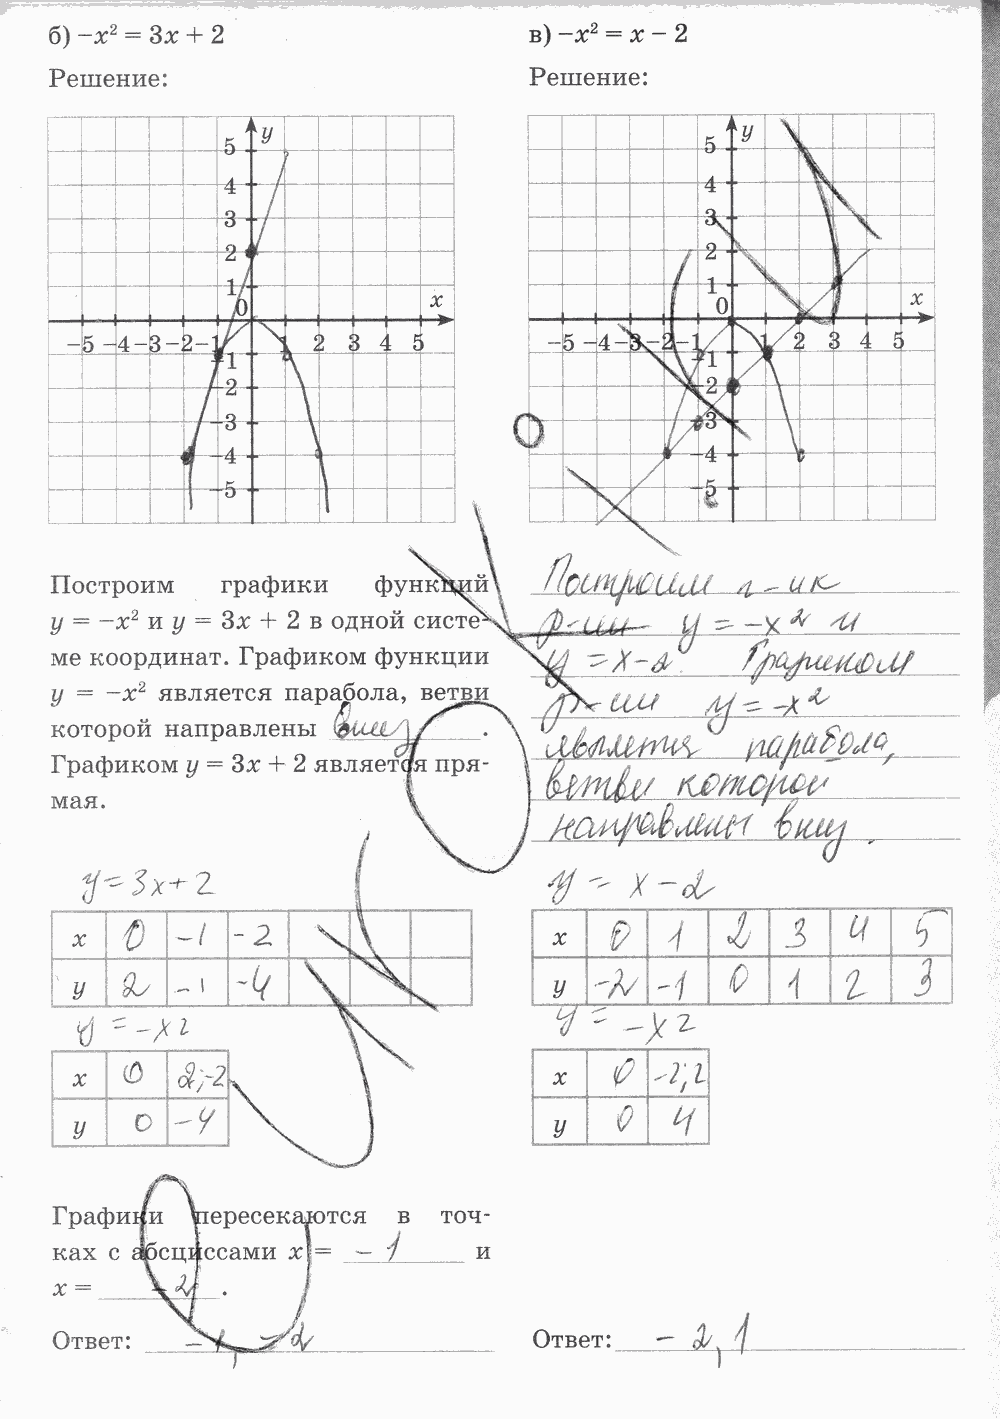 б) −x² = 3x + 2
Решение:
y
5
4
3
2
1
0
x
−5 −4 −3 −2 −1
1 2 3 4 5
−1
−2
−3
−4
−5
Построим графики функций
y = −x² и y = 3x + 2 в одной систе-
ме координат. Графиком функции
y = −x² является парабола, ветви
которой направлены вниз .
Графиком y = 3x + 2 является пря-
мая.
y = 3x + 2
x 0 −1 −2
y 2 −1 −4
y = −x2
x 0 2;−2
y 0 −4
Графики пересекаются в точ-
ках с абсциссами x = −1 и
x = −2 .
Ответ: −1, −2
в) −x² = x − 2
Решение:
y
5
4
3
2
1
0
x
−5 −4 −3 −2 −1
2 3 4 5
−1
−2
−3
−4
−5
Построим г-ик
ф-ии y = −x² и
y = x−2. Графиком
ф-ии y = −x²
является парабола,
ветви которой
направлены вниз.
y = x − 2
x 0 1 2 3 4 5
y −2 −1 0 1 2 3
y = −x2
x 0 −2;2
y 0 4
Ответ: −2, 1